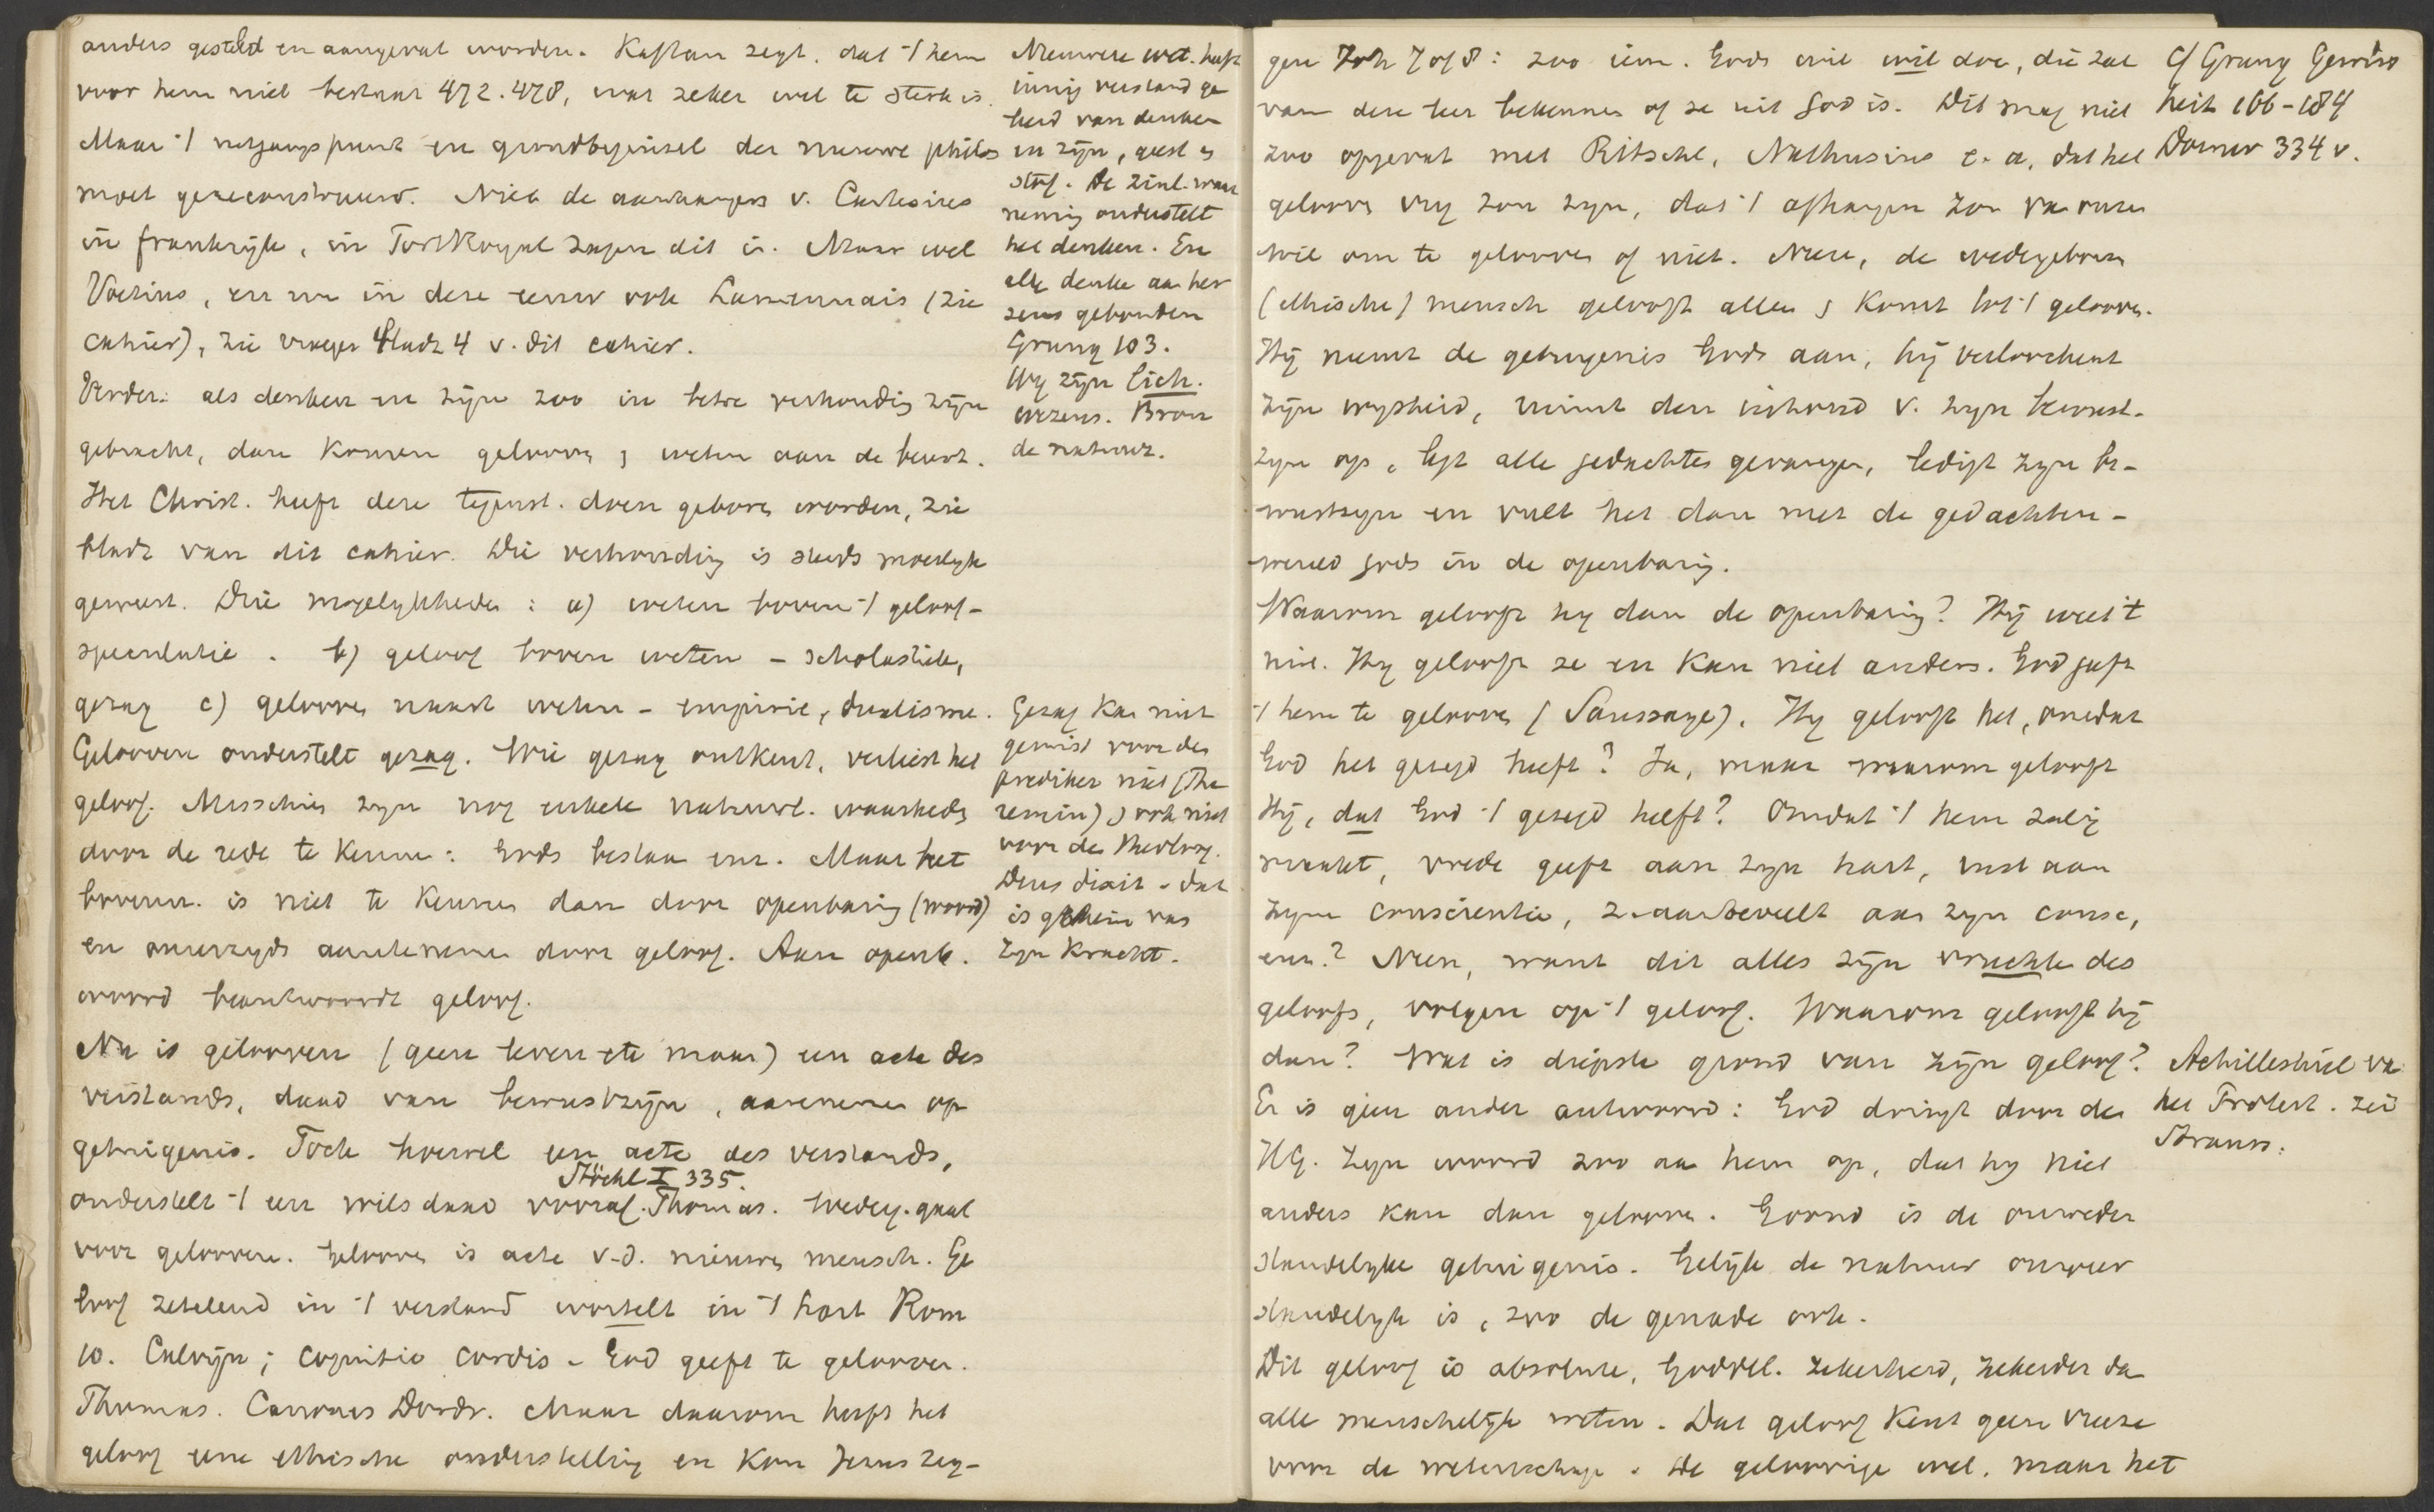 anders gesteld en aangevat worden. Kaftan zegt. dat 't hem
voor hem niet bestaat 472.478, wat zeker wel te sterk is.
Maar 't uitgangspunt en grondbeginsel der nieuwe philos
moet gereconstrueerd. Niet de aanhangers v. Cartesius
in frankrijk, in Port Royal zagen dit in. Maar wel
Voetius, en nu in deze eeuw ook Lamennais (zie
cahier), zie vroeger bladz 4 v. dit cahier.
Verder: als denken en zijn zoo in betre verhouding zijn
gebracht, dan komen gelooven en weten aan de beurt.
Het Christ. heeft deze tegenst. doen geboren worden, zie
bladz van dit cahier. Die verhouding is steeds moeilijk
geweest. Drie mogelykheden: a) weten boven 't geloof -
speculatie. b) geloof boven weten - scholastiek,
gezag c) gelooven naast weten - empirie, dualisme.
Gelooven onderstelt gezag. Wie gezag ontkent, verliest het
geloof. Misschien zyn nog enkele natuurl. waarheden
door de rede te kennen: Gods bestaan enz. Maar het
bovenn. is niet te kennen dan door openbaring (woord)
en onzerzyds aantenemen door geloof. Aan openb.
woord beantwoordt geloof.
Nu is gelooven (geen leven etc maar) een acte des
verstands, daad van bewustzijn, aannemen op
getuigenis. Toch hoewel een acte des verstands,
Stöckl I 335.
onderstelt 't een wilsdaad vooraf. Thomas. Wederg. gaat
voor gelooven. Gelooven is acte v.d. nieuwen mensch. Ge
loof zetelend in 't verstand wortelt in 't hart Rom
10. Calvijn; cognitio cordis. God geeft te gelooven.
Thomas. Canones Dordr. Maar daarom heeft het
geloof eene ethische onderstelling en kon Jezus zeg-
Nieuwere wet. heeft
innig verband ge
heid van denken
en zijn, geest en
stof. De zinl. waar
neming onderstelt
het denken. En
elk denken aan her
sens gebonden
Grung 103.
Wy zijn lich.
wezens. Bron
de natuur.
Gezag kan niet
gemist voor den
prediker niet (The
remin) en ook niet
voor den theoloog.
Deus dixit - dat
is geheim van
zyn kracht.
gen Joh 7 of 8: zoo iem. Gods wil wil doen, die zal
van deze leer bekennen of ze uit God is. Dit mag niet
zoo opgevat met Ritschl, Nathusius e.a, dat het
gelooven vry zou zyn, dat 't afhangen zou van onzen
wil om te gelooven of niet. Neen, de wedergeboren
(ethische) mensch gelooft alleen en komt tot 't gelooven.
Hij neemt de getuigenis Gods aan, hij verloochent
zijn wysheid, ruimt den inhoud v. zyn bewust-
zyn op, legt alle gedachtes gevangen, ledigt zyn be-
wustzyn en vult het dan met de gedachten-
wereld Gods in de openbaring.
Waarom gelooft hy dan de openbaring? Hij weet 't
niet. Hy gelooft ze en kan niet anders. God geeft
't hem te gelooven (Saussaye). Hy gelooft het, omdat
God het gezegd heeft? Ja, maar waarom gelooft
Hij, dat God 't gezegd heeft? Omdat 't hem zalig
maakt, vrede geeft aan zyn hart, rust aan
zyne conscientie, z. aanbeveelt aan zyn consc,
enz.? Neen, want dit alles zijn vruchten des
geloofs, volgen op 't geloof. Waarom gelooft hij
dan? Wat is diepste grond van zijn geloof?
Er is geen ander antwoord: God dringt door den
HG. zyn woord zoo aan hem op, dat hy niet
anders kan dan gelooven. Grond is de onweder
standelyke getuigenis. Gelijk de natuur onweer
standelyk is, zoo de genade ook.
Dit geloof is absolute, Goddel. zekerheid, zekerder dan
alle menschelijk weten. Dat geloof kent geen vreeze
voor de wetenschap. De geloovige wel. maar het
Cf Grung Gewiss
heit 166-184
Dorner 334 v.
Achilleshiel van
het Protest. zei
Strauss.